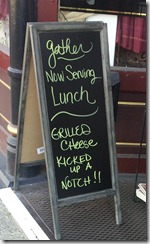 gather
Now Serving
Lunch
GRILLED
CHEESE
KICKED UP A
NOTCH!!